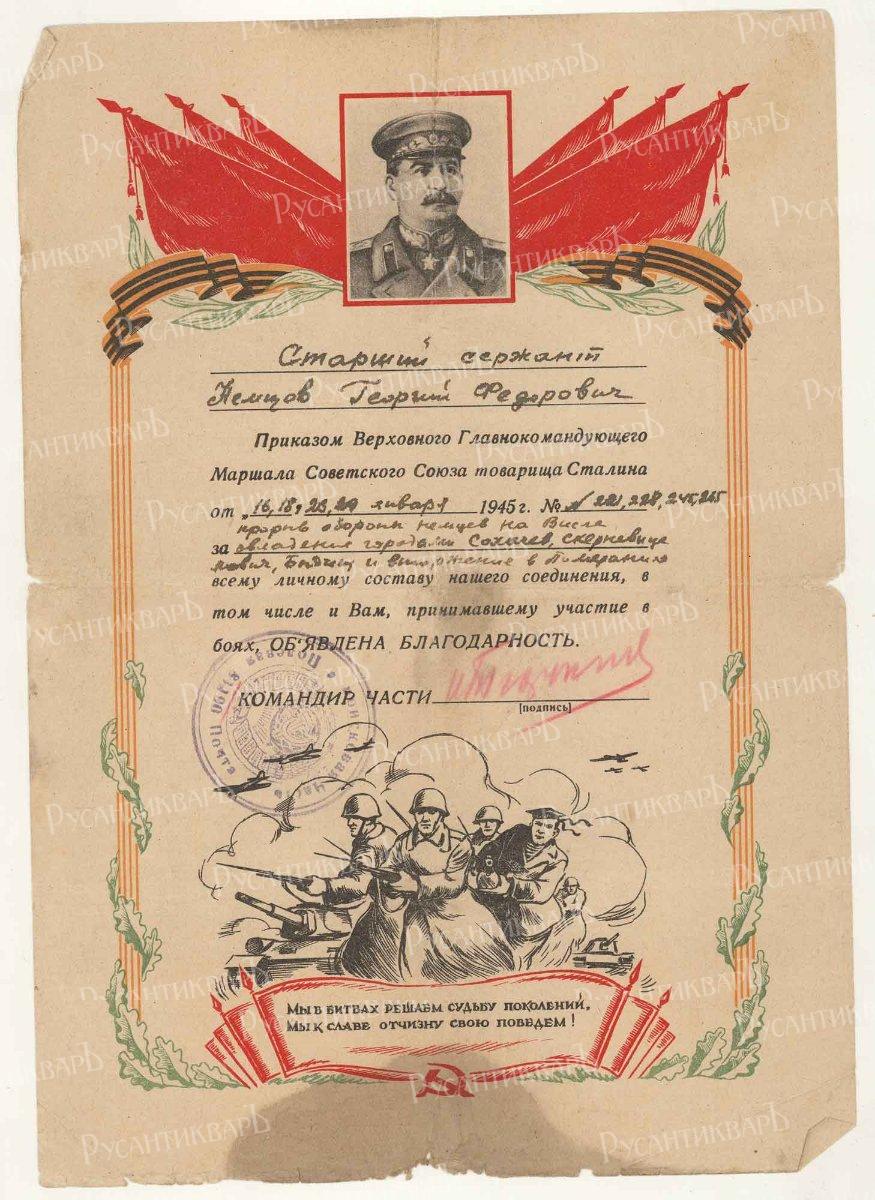 Старший сержант
Немцов Георгий Федорович
Приказом Верховного Главнокомандующего
Маршала Советского Союза товарища Сталина
от „16, 18, 23, 29 января 1945 г. № 221, 228, 245, 265
прорыв обороны немцев на Висле
за овладение городами Сохачев, Скерневице
и вторжение в Померанию
всему личному составу нашего соединения, в
том числе и Вам, принимавшему участие в
боях, ОБ'ЯВЛЕНА БЛАГОДАРНОСТЬ.
КОМАНДИР ЧАСТИ
[подпись]
Полевая почта
Войсковая часть
МЫ В БИТВАХ РЕШАЕМ СУДЬБУ ПОКОЛЕНИЙ,
МЫ К СЛАВЕ ОТЧИЗНУ СВОЮ ПОВЕДЕМ!
РУСАНТИКВАРЪ